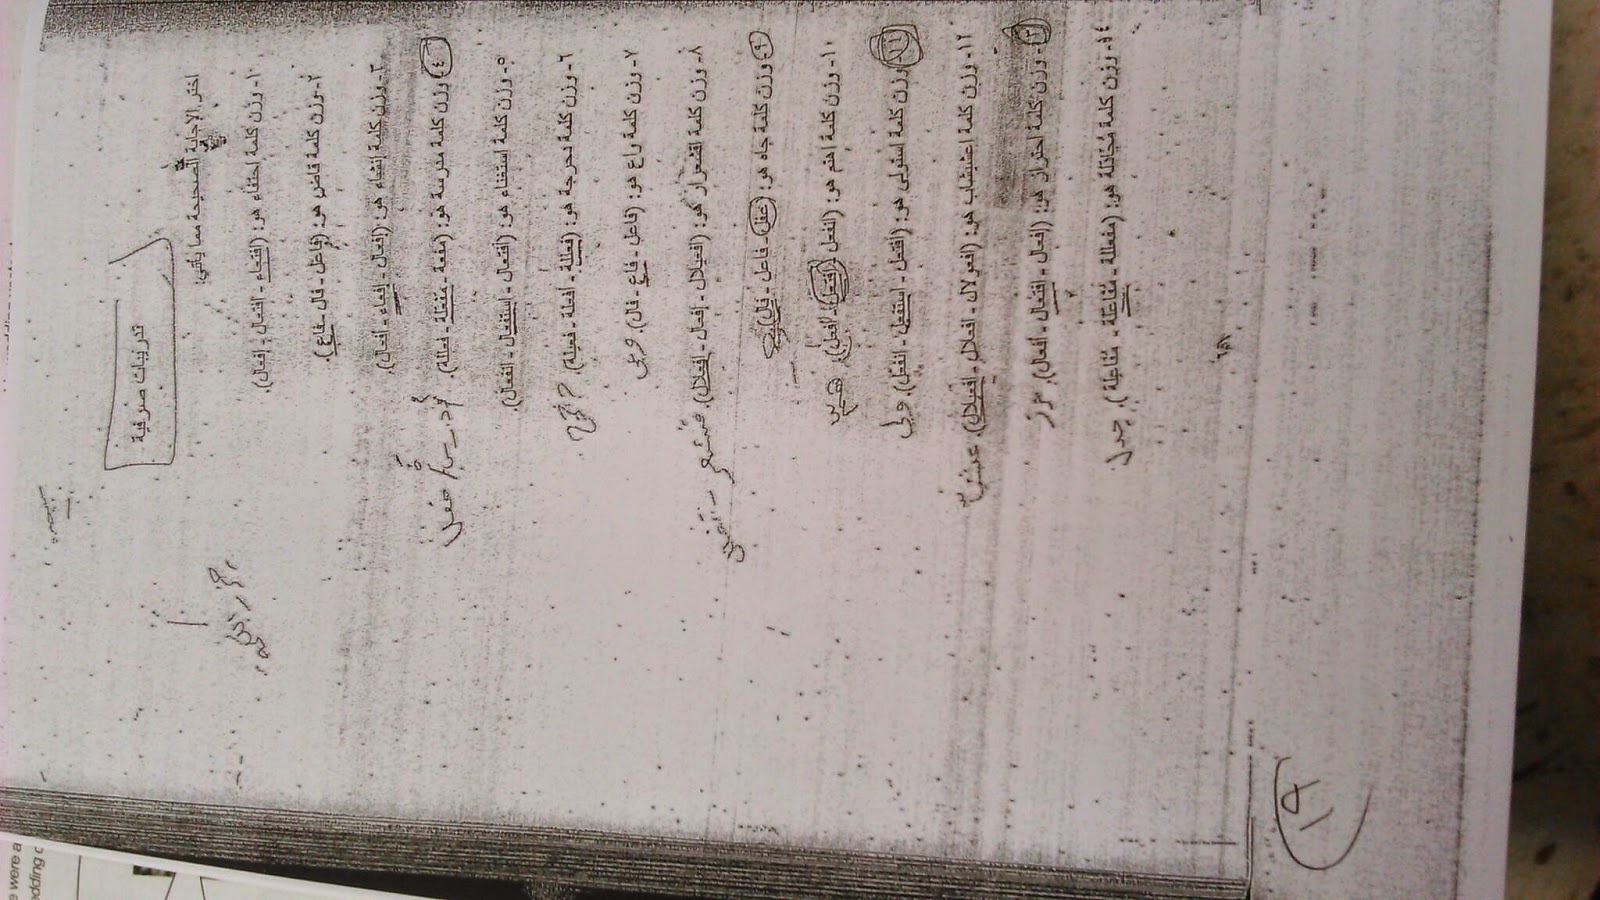 تدريبات صرفية
اختر الإجابة الصحيحة مما يأتي:
١- وزن كلمة احتفاء هو: (افتعاء - افتعال - إفعال).
٢- وزن كلمة قاضٍ هو: (فاعل - فال - فاعٍ).
٣- وزن كلمة إنشاء هو: (إفعال - إفعاء - افعال).
٤- وزن كلمة مدرسة هو: (مفعة - مَفْعَلة - فعللة). مُدرسة / مفعل
٥- وزن كلمة استغناء هو: (افتعال - استفعال - انفعال).
٦- وزن كلمة دحرجة هو: (فعللة - أفعلة - فعيلة).
٧- وزن كلمة راعٍ هو: (فاعل - فاعٍ - فال).
٨- وزن كلمة اقشعرار هو: (افعيلال - افعال - افعلال).
٩- وزن كلمة جاه هو: (عفل - فاعل - فال)
١٠- وزن كلمة اهتم هو: (انفعل - افتعل - افعل).
١١- وزن كلمة استولى هو: (افتعل - استفعل - انفعل). ولى
١٢- وزن كلمة اعشيشاب هو: (افعولال - افعلال - افعيلال).
١٣- وزن كلمة احتراز هو: (إفعال - افتعال - افعال). حرز
١٤- وزن كلمة مُجَادَلة هو: (مفعللة - مُفَاعَلة - مُفَاعِلة). جدل
١٩